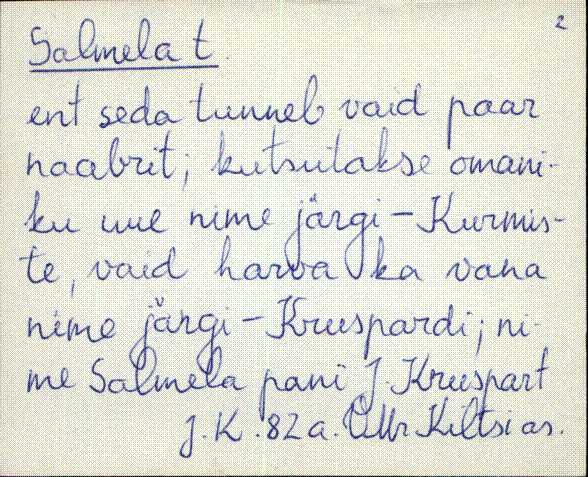 2
Salmela t.
ent seda tunneb vaid paar
naabrit; kutsutakse omani-
ku uue nime järgi – Kurmis-
te, vaid harva ka vana
nime järgi – Kruspardi; ni-
me Salmela pani J. Kruspart
J. K. 82 a. Kiltsi as.